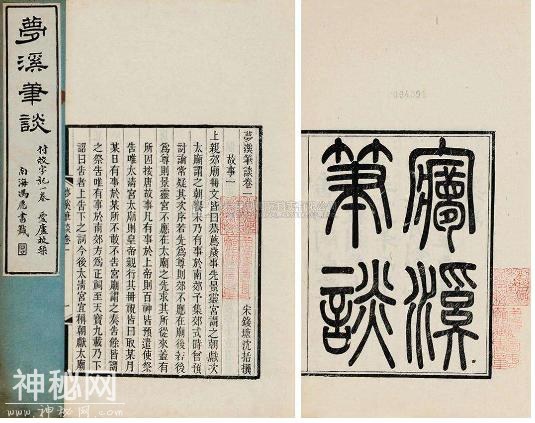 夢溪筆談
南海馮愿書籤
夢溪筆談卷一
宋錢塘沈括撰
故事一
上親郊廟冊文皆曰恭薦歲事先景靈宮謂之朝獻次
太廟謂之朝饗末乃有事於南郊予集郊式時曾預
討論常疑其次序若先為尊則郊不應在廟後若後
為尊則景靈宮不應在太廟之先求其所從來蓋有
所因按唐故事凡有事於上帝則百神皆預遣使祭
告唯太清宮太廟則皇帝親行其冊祝皆曰取某月
某日有事於某所不敢不告宮廟謂之奏告餘皆謂
之祭告唯有事於南郊方為正祠至天寶九載乃下
詔曰告者上告下之詞今後太清宮宜稱朝獻太廟
夢溪筆談卷一
一
夢溪
筆談
神秘网
www.神秘网.com